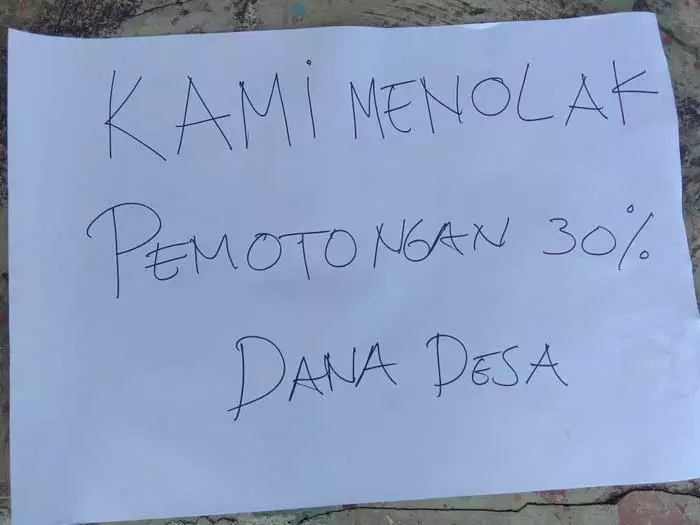 KAMi MENOLAK
PEMOTONGAN 30%
DANA DESA